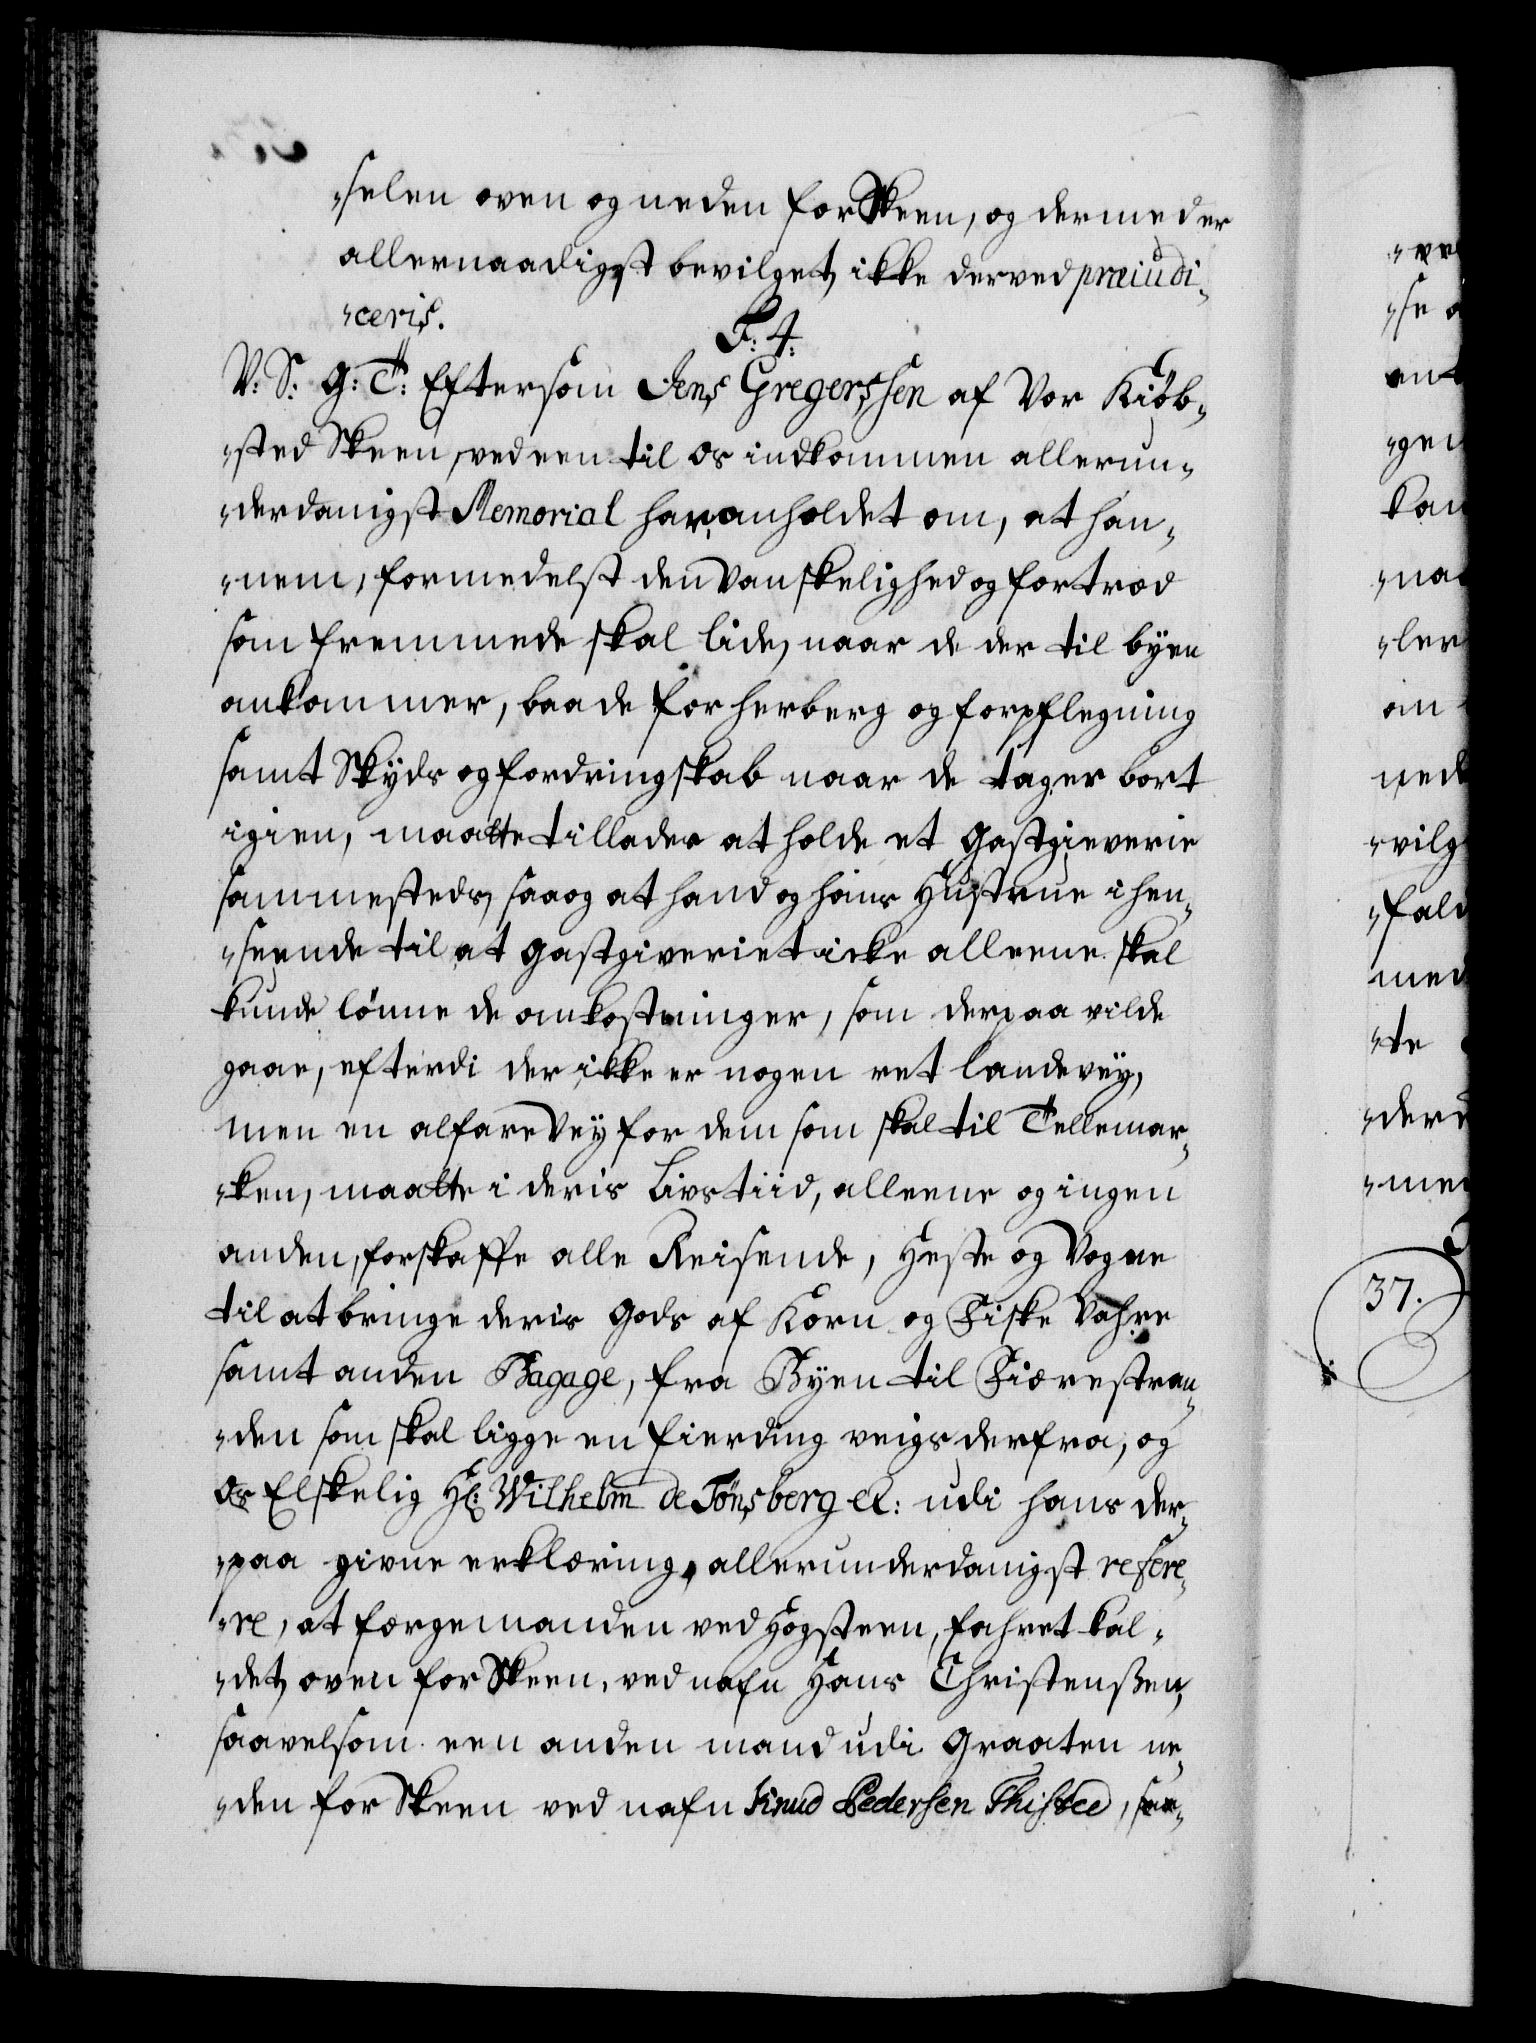 "selen oven og neden for Skeen, og dermed er
allernaadigst bevilget, ikke derved præiudi-
"ceris.
F: 4.
V: S: G: T: Eftersom Jens Gregerssen af Vor Kiøb-
"sted Skeen, ved een til os indkommen allerun-
"derdanigst Memorial har anholdet om, at han-
"nem, formedelst den Vanskelighed og fortræd
som fremmede skal lide, naar de der til byen
ankommer, baade for herberg og forpflegning
samt Skyds og fordringskab naar de tager bort
igien, maatte tillades at holde et Gastgieverie
sammesteds, saa og at hand og hans Hustrue i hen-
"seende til at Gastgiveriet icke alleene skal
kunde lønne de omkostninger, som derpaa vilde
gaae, efterdi der ikke er nogen ret landevey,
men en alfare Vey for dem som skal til Tellemar-
"ken, maatte i deris Livstiid, alleene og ingen
anden, forskaffe alle Reisende, Heste og Vogne
til at bringe deris Gods af Korn og Fiske Vahre
samt anden Bagage, fra Byen til Fiærestran-
"den som skal ligge en fierding veigs derfra, og
Os Elskelig Hr: Wilhelm de Tønsberg &: udi hans der-
"paa givne erklæring, allerunderdanigst refere-
"re, at færgemanden ved Hogsteen, fahret kal-
"det, oven for Skeen, ved nafn Hans Christenßen,
saavelsom een anden mand udi Graaten ne-
"den for Skeen ved nafn Knud Pedersen Thisted, saa-
37.